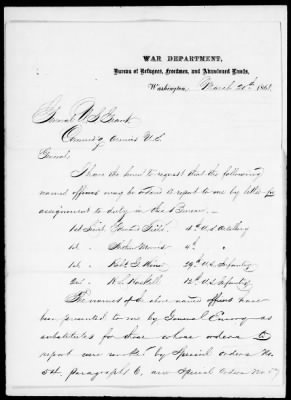 WAR DEPARTMENT,
Bureau of Refugees, Freedmen, and Abandoned Lands,
Washington, March 20th 1867.
General U S Grant
Comm'd'g Armies U.S.
General:
I have the honor to request that the following
named officers may be ordered to report to me by letter for
assignment to duty in this Bureau.
1st Lieut. Field 4th U.S. Artillery
1st " Morris 4th "
1st " Robt. G. 29th U.S. Infantry
2nd " H. L. Haskell 12th U.S. Infantry
The names of the above named officers have
been presented to me by General Emory as
substitutes for those whose orders to
report were by Special Orders No.
54, paragraph 6, and Special Orders No 57